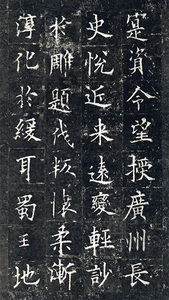 寔資令望授廣州長
史悦近来遠變輕訬
於雕題伐叛懷柔漸
淳化於緩耳蜀王地